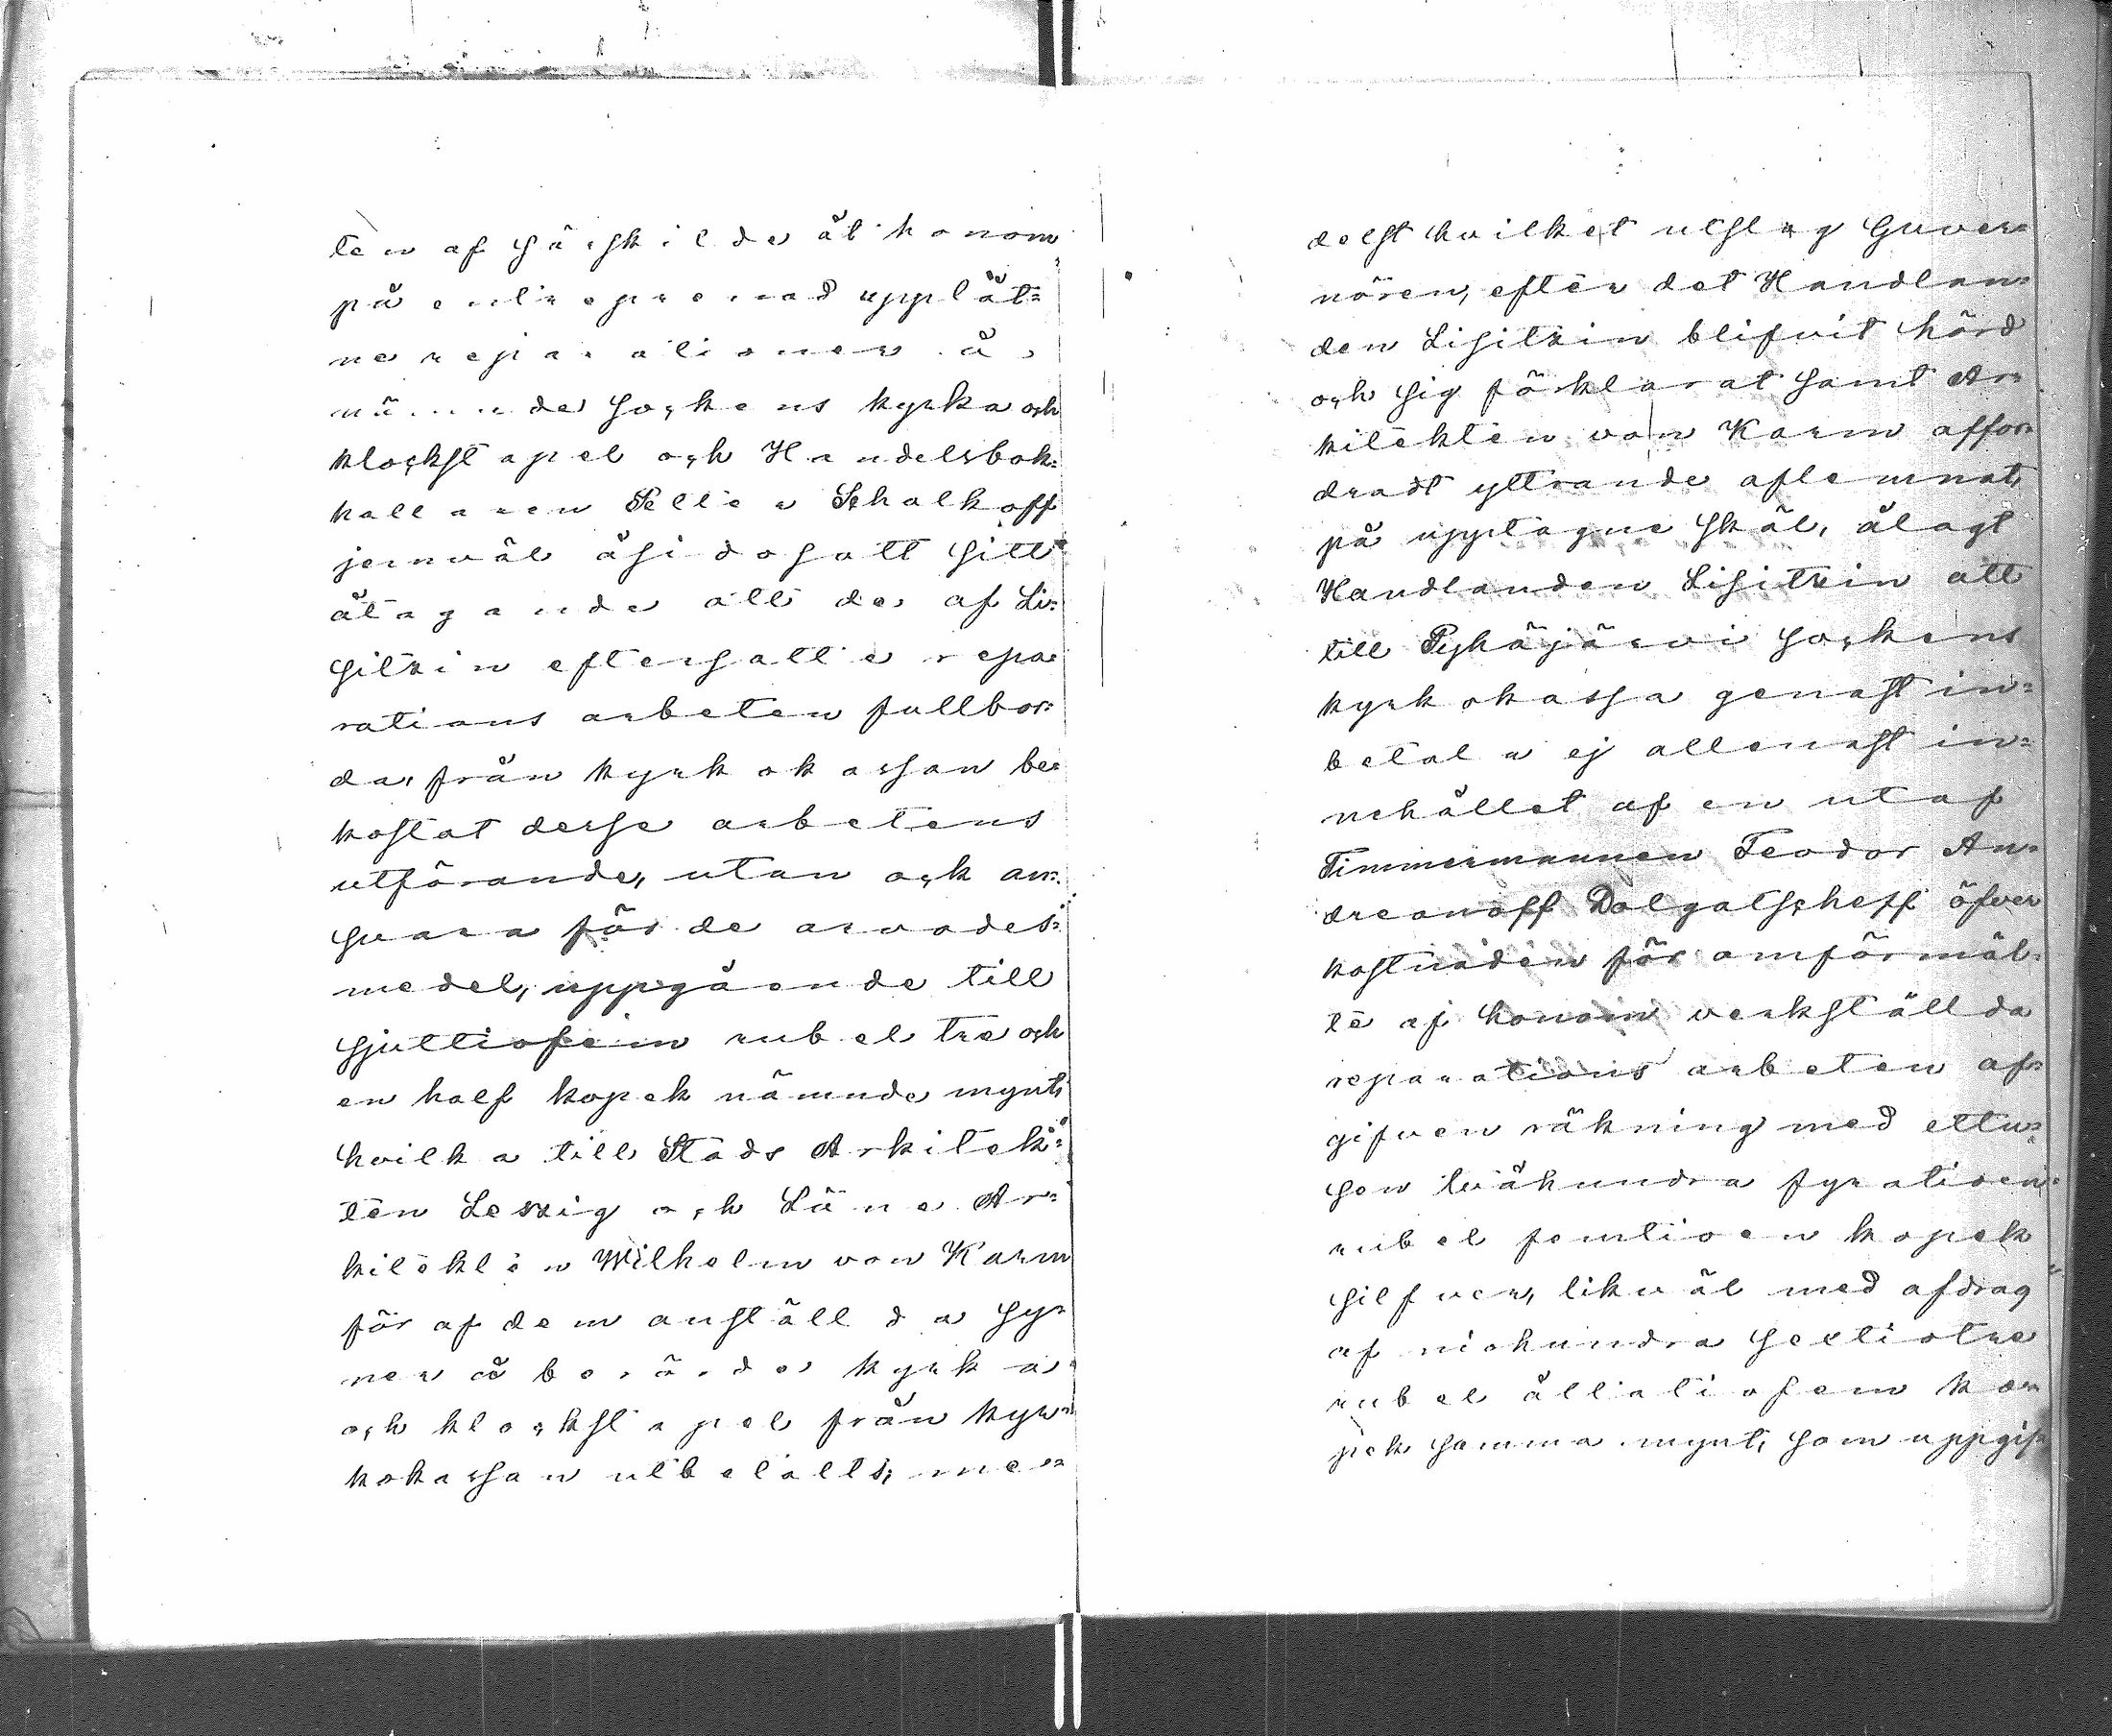 ten af särskilde åt honom
på entreprenad upplåt=
ne reparationer å
nämnde sockens kyrka och
klockstapel och Handelsbok=
hållaren Petter Schalkoff
jemväl åsidosatt sitt
åtagande att de, af Li=
sitzin eftersatte repa=
rations arbeten fullbor=
da, från kyrkokassan be=
kostat desse arbetens
utförande, utan ock an=
svara för de arvodes=
medel, uppgående till
sjuttiofem rubel tre och
en half kopek nämnde mynt,
hvilka till Stads Arkitek=
ten Leszig och Läne Ar=
kitekten Wilhelm von Karm
för af dem anställda sy=
ner å berörde kyrka
och klockstapel från kyr=
kokassan utbetalts; me=
delst hvilket utslag Guver=
nören, efter det Handlan=
den Lisitzin blifvit hörd
och sig förklarat samt Ar=
kitekten von Karm affor=
dradt yttrande aflemnat,
på upptagne skäl, ålagt
Handlanden Lisitzin att
till Pyhäjärvi sockens
kyrkokassa genast in=
betala ej allenast in=
nehållet af en utaf
Timmermannen Feodor An=
dreanoff Dolgatscheff öfver
kostnaden för omförmäl=
te af honom verkställda
reparations arbeten af=
gifven räkning med ettu=
sen tvåhundra fyratioen
rubel femtioen kopek
silfver, likväl med afdrag
af niohundra sextiotre
rubel åttatiofem ko=
pek samma mynt, som uppgif=